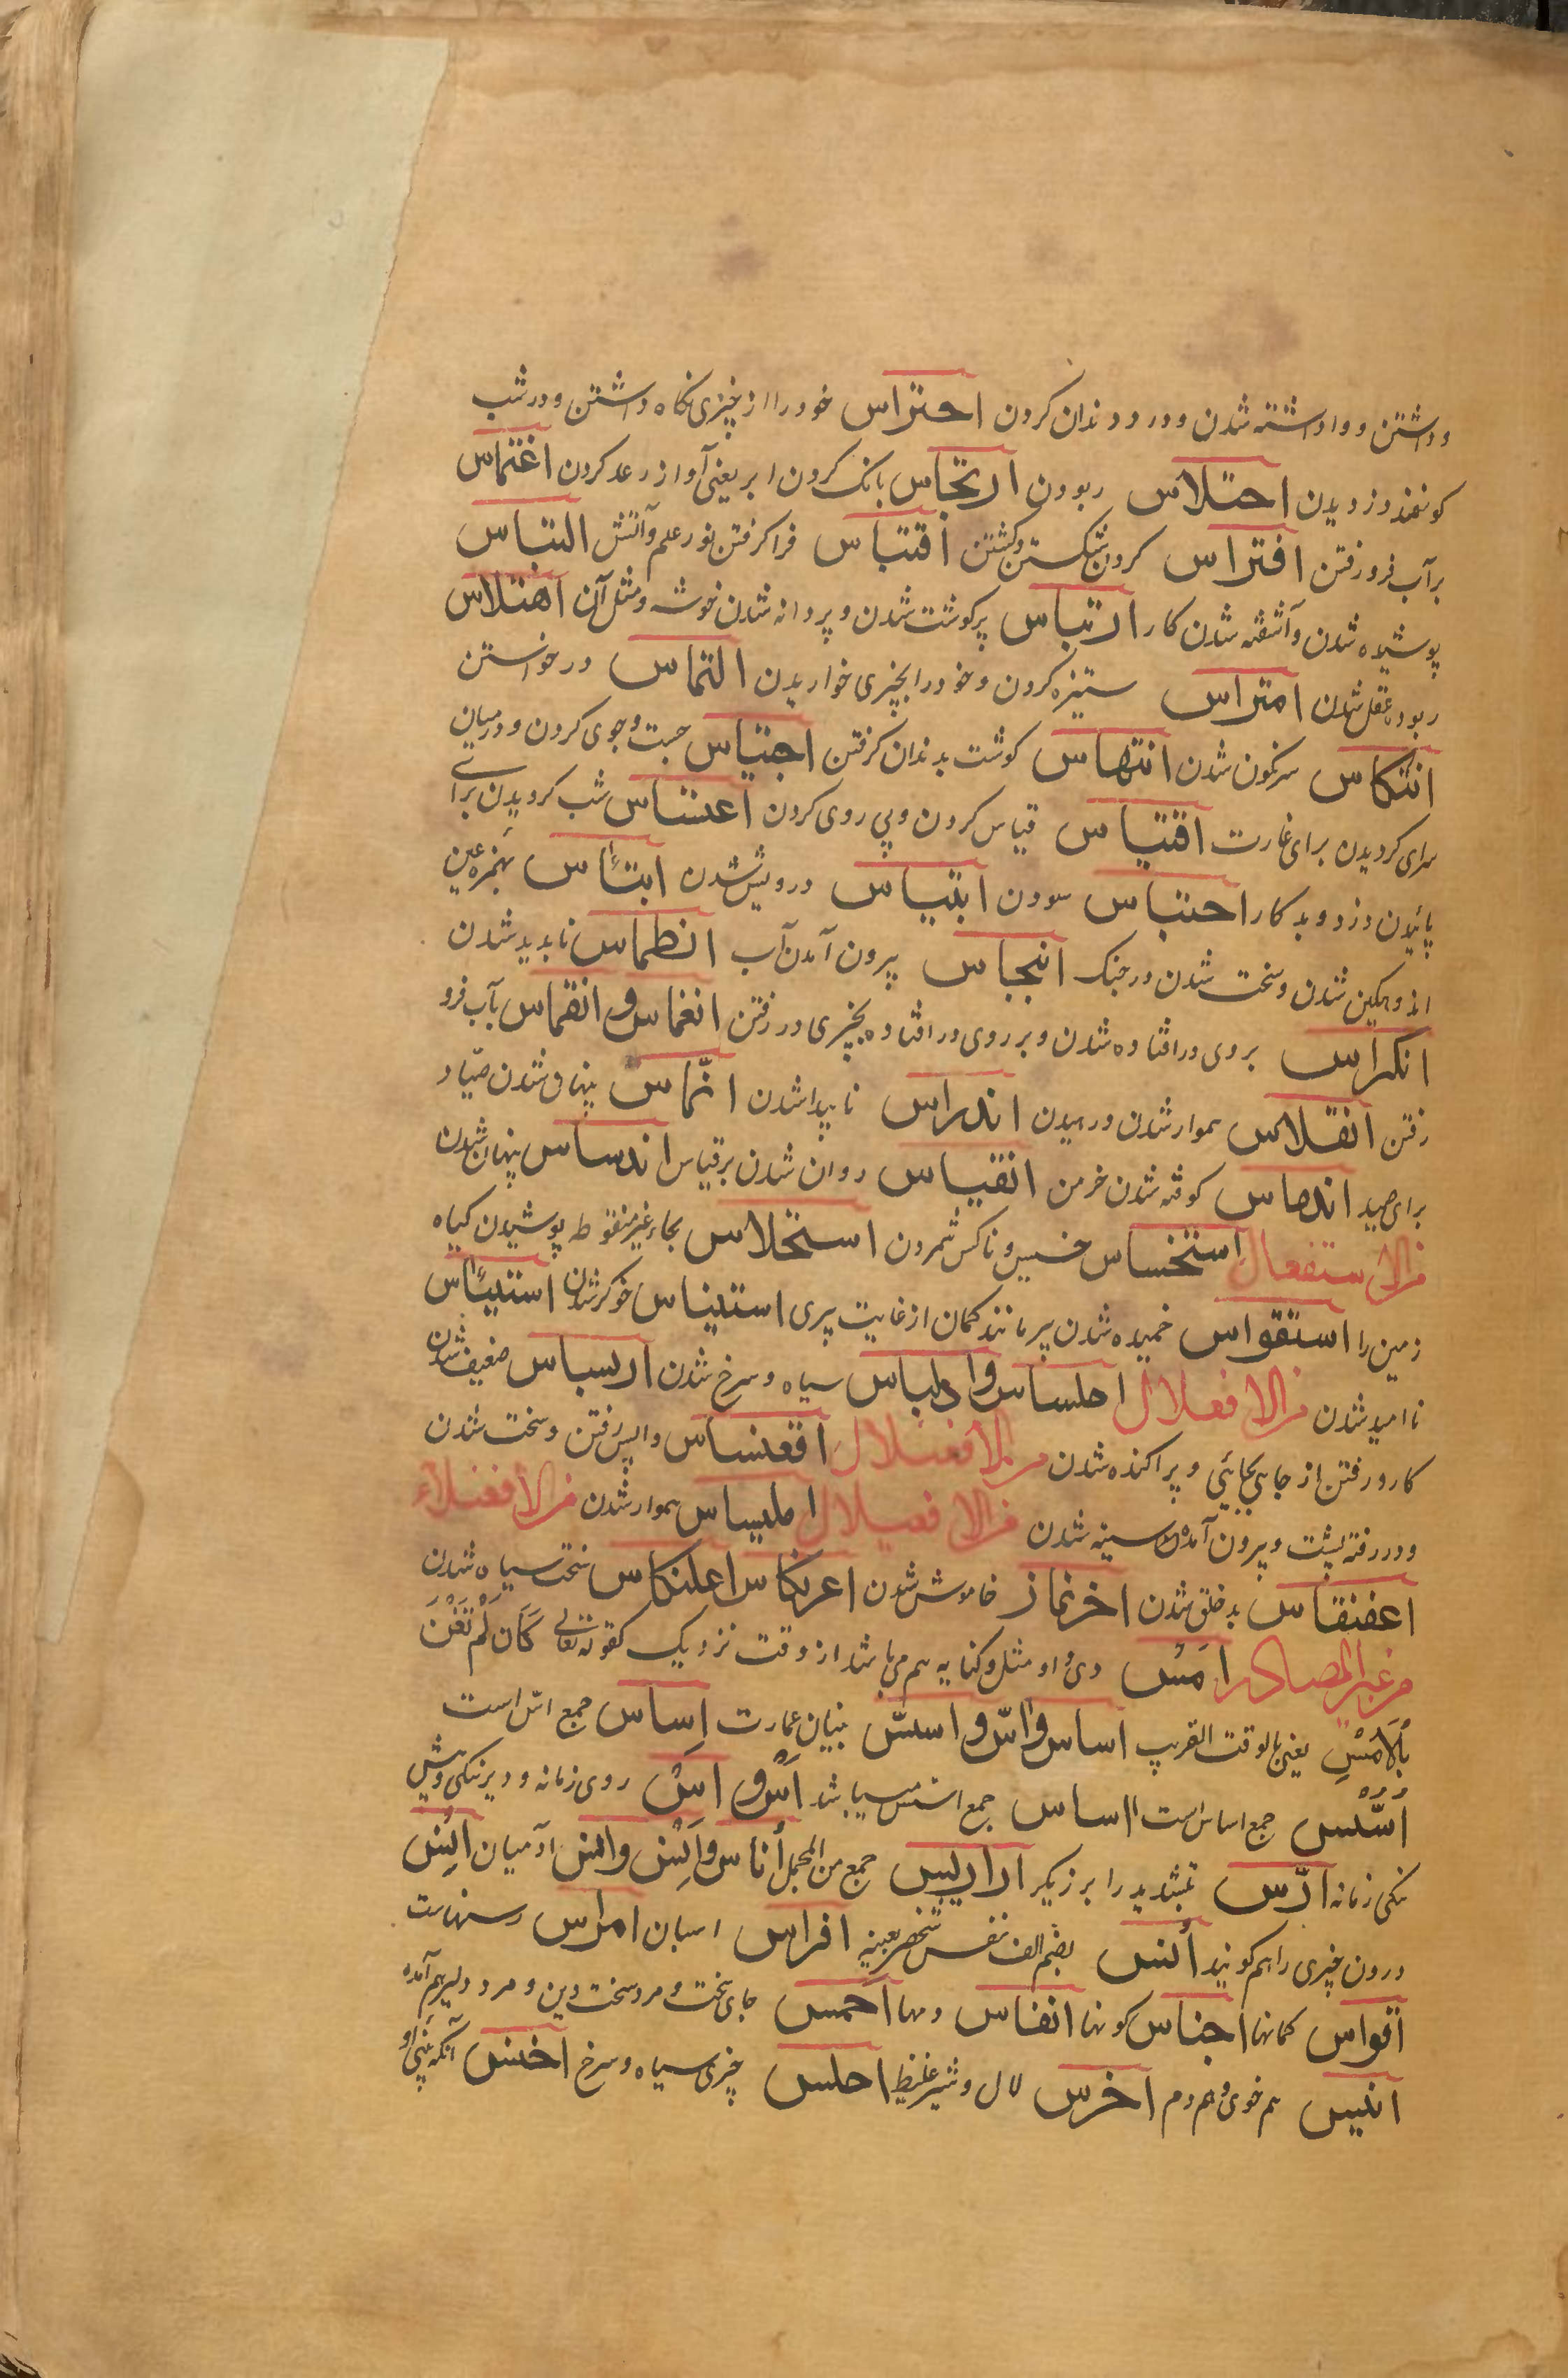 وداشتن و واداشته شدن و درد دندان کردن احتراس خود را از چیزی نکاه داشتن و در شب
کوسفند دزدیدن اختلاس ربودن ارتجاس بانک کردن ابر یعنی آواز رعد کردن اغتماس
بر آب فرو رفتن افتراس کردن شکستن و کشتن اقتباس فرا کرفتن نور علم و آتش التباس
پوشیده شدن و آشفته شدن کار ارتباس پر کوشت شدن و پر دانه شدن خوشه و مثل آن اهتلاس
ربوده عقل شدن امتراس ستیزه کردن و خود را بچیزی خواریدن التماس در خواستن
انتکاس سرنکون شدن انتهاس کوشت بدندان کرفتن اجتیاس جست و جوی کردن و در میان
سرای کردیدن برای غارت اقتیاس قیاس کردن و پی روی کردن اعتساس شب کردیدن برای
پائیدن دزد و بد کار احتباس سودن ابتیاس درویش شدن ابتئاس بهمزه عین
اندوهکین شدن و سخت شدن در جنک انبجاس بیرون آمدن آب انطماس نابدید شدن
انکراس بروی در افتاده شدن و بر روی در افتاده بچیزی در رفتن انغماس و انقماس بآب فرو
رفتن انقلاس هموار شدن و رمیدن اندراس ناپیدا شدن انّماس پنهان شدن صیّاد
برای صید اندهاس کوفته شدن خرمن انقیاس روان شدن بر قیاس اندساس پنهان شدن
من الاستفعال استخساس خسیس و ناکس شمردن استحلاس بحاء غیر منقوطه پوشیدن کیاه
زمین را استقواس خمیده شدن پیر مانند کمان از غایت پیری استیناس خوکر شدن استیئاس
ناامید شدن من الافعلال احلساس و ادلباس سیاه و سرخ شدن اربساس ضعیف شدن
کار و رفتن از جای بجائی و پراکنده شدن من الافعنلال اقعنساس واپس رفتن و سخت شدن
و در رفته پشت و بیرون آمده سینه شدن من الافعیلال املیساس هموار شدن من الافعنلاء
اعفنقاس بد خلق شدن اخرنماز خاموش شدن اعرنکاس اعلنکاس سخت سیاه شدن
من غیر المصادر امس دی و او مثل و کنایه هم می باشد از وقت نزدیک کقوله تعالی کَاَن لَّمْ تَغْنَ
بِالْاَمْسِ یعنی بالوقت القریب اساس و اسّ و اسس بنیان عمارت اِساس جمع اسّ است
اُسُس جمع اساس است ااساس جمع اسس میباشد اَسّ و اسّ روی زمانه و دیرینکی و پیش
نکی زمانه ارّس بتشدید را برزیکر اراریس جمع من المجمل أناس و اَنَس و انس آدمیان انس
درون چیزی را هم کویند أنس بضم الف نفس شخص بعینه افراس اسبان امراس رسنهاست
أقواس کمانها اجناس کونها انفاس دمها احمس جای سخت و مرد سخت دین و مرد دلیر هم آمده
انیس هم خوی و هم دم اخرس لال و شیر غلیظ احلس چیزی سیاه و سرخ اخنس آنکه بینی او